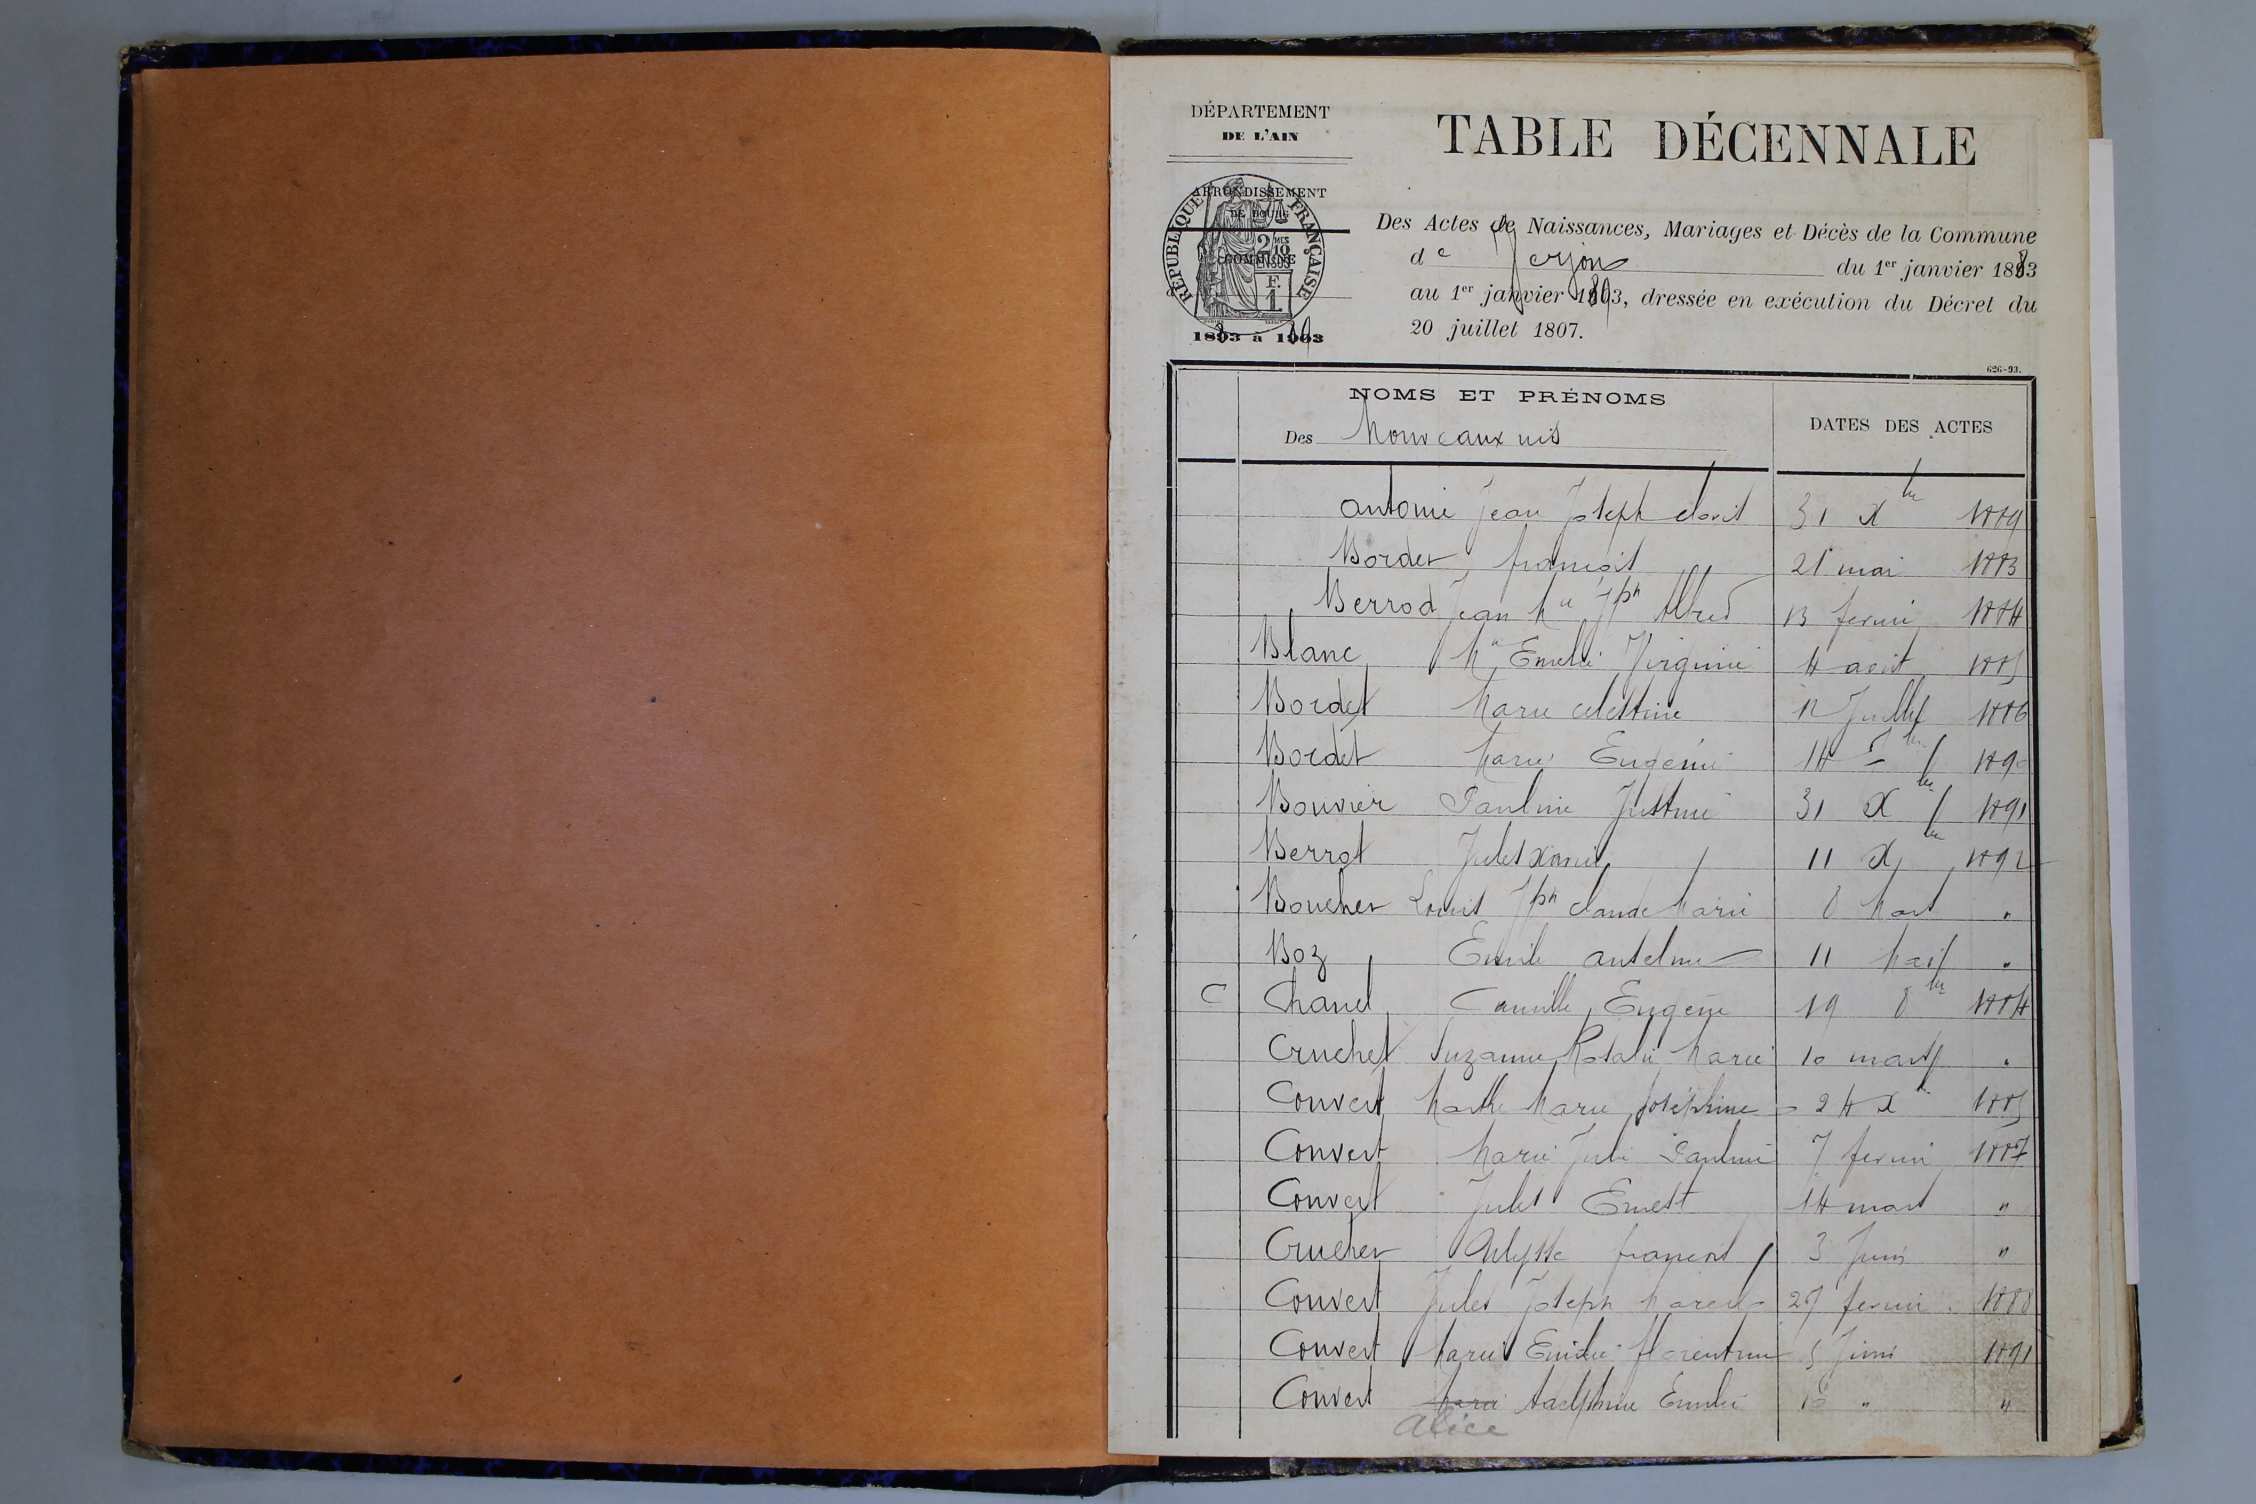 DÉPARTEMENT
DE L'AIN
ARRONDISSEMENT
DE BOURG
COMMUNE
RÉPUBLIQUE FRANÇAISE
1883 à 1893
TABLE DÉCENNALE
Des Actes de Naissances, Mariages et Décès de la Commune
de Verjon du 1er janvier 1883
au 1er janvier 1893, dressée en exécution du Décret du
20 juillet 1807.
626-93.
NOMS ET PRÉNOMS
Des Nouveaux nés
DATES DES ACTES
Antoine Jean Joseph 31 Xbre 1889
Border françois 21 mai 1883
Berrod Jean Mie Jph Alfred 13 fevrier 1884
Blanc Mie Emelie Virginie 4 août 1885
Bordet Marie celestine 12 Juillet 1886
Bordet Marie Eugénie 14 bre 1890
Bouvier Pauline Justine 31 Xbre 1891
Berrot Jules Xavier 11 Xbre 1892
Boucher Louis Jph claude Marie 8 Mars "
Boz Emile antelme 11 "
C Chanel Camille Eugène 19 8bre 1884
Cruchet Suzanne Rosalie Marie 10 mars "
Convert Marthe Marie Joséphine 24 Xbre 1885
Convert Marie Julie Pauline 7 fevrier 1887
Convert Jules Ernest 14 mars "
Crucher Ulysse françois 3 Juin "
Convert Jules Joseph Marcel fevrier 1888
Convert Marie Emilie florentine 5 Juin 1891
Convert Marie Adelphine Emilie 16 " "
Alice